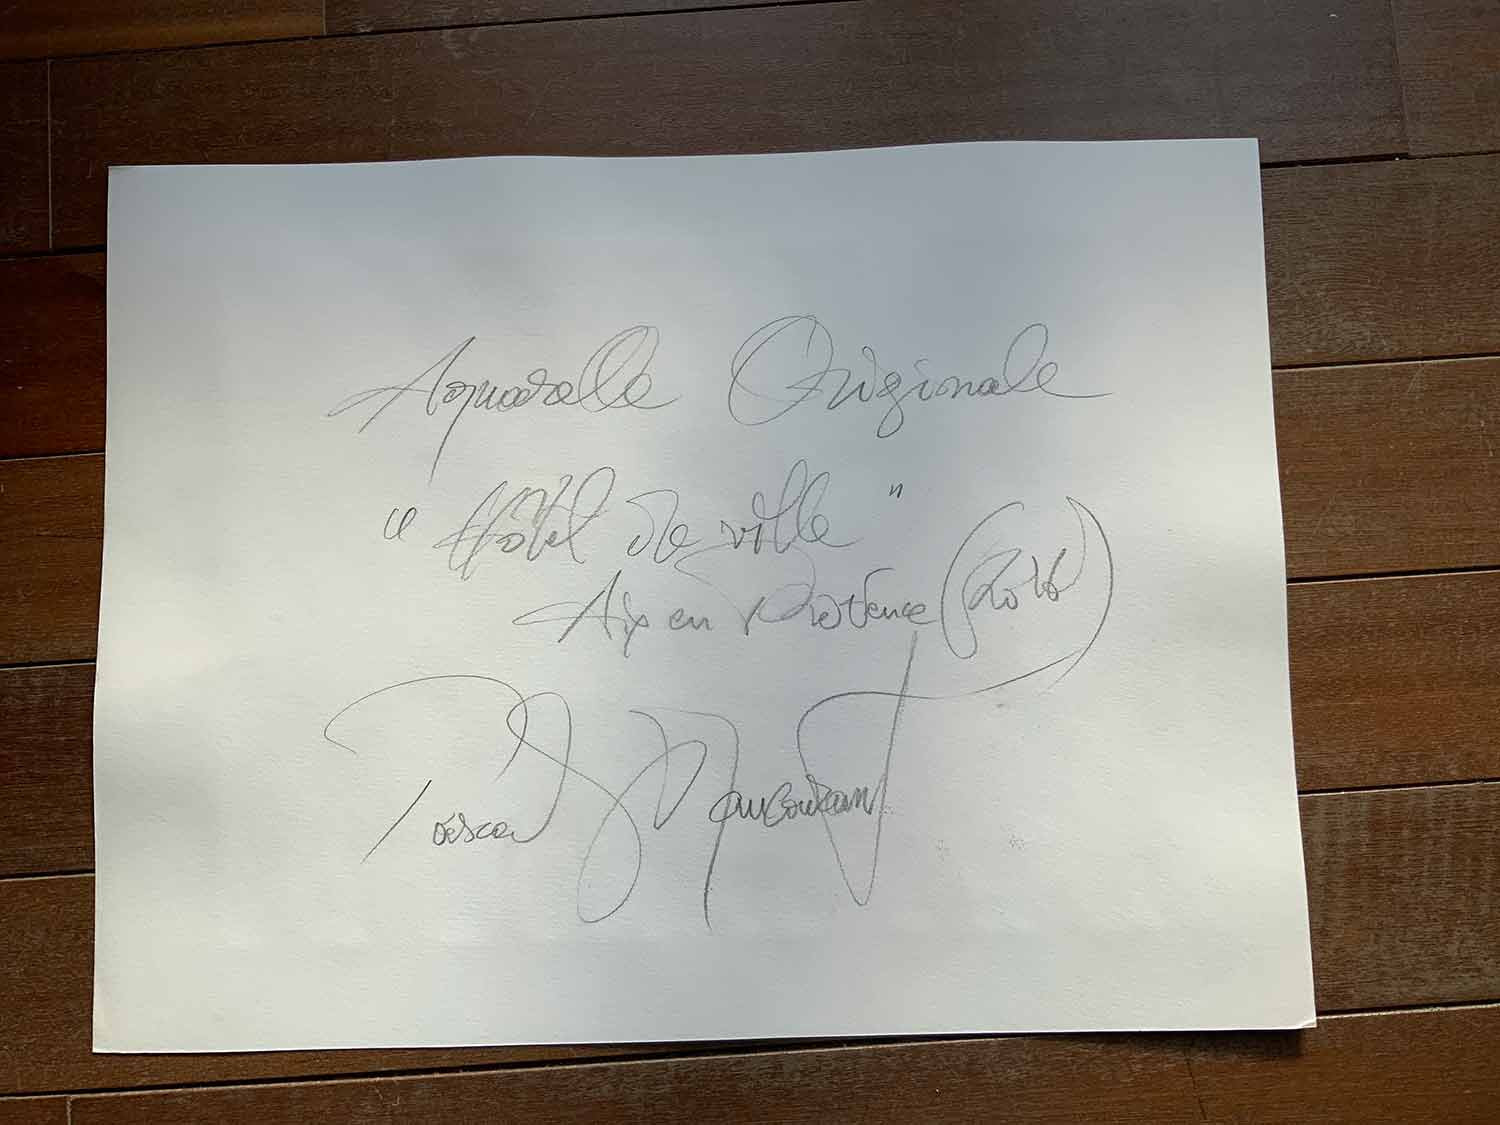 Aquarelle Originale
"Hôtel de ville"
Aix en Provence (2016)